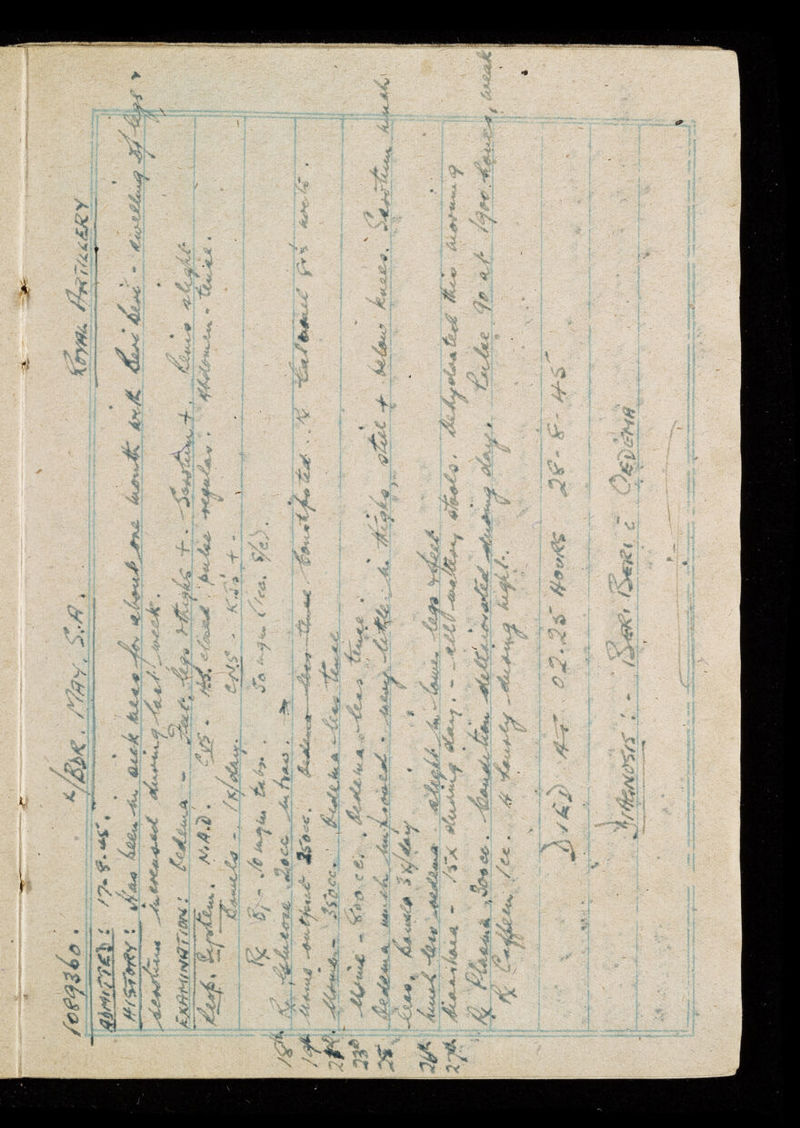 1089360. L/BDR. MAY. S.A. ROYAL ARTILLERY
ADMITTED: 17-8-45.
HISTORY: Has been in sick ness for about one month with Beri Beri - swelling of legs &
scrotum increased during last week.
EXAMINATION: Oedema - Feet, legs & thighs +. Scrotum +. Penis slight.
Resp. System. N.A.D. CVS - H.S. closed pulse regular. Abdomen - tense.
Bowels - 1x/day. CNS - KJs + -
Rx B1 - 10 mgm tabs. 50 mgm (1cc. S/C).
18th Rx Glucose 20cc Intrav.
19th Urine output 350cc. Oedema less tense Constipated. Rx Calomel gr nocte.
Urine - 350cc. Oedema less tense
23rd Urine - 800cc. Oedema less tense.
25 Oedema much improved - very little in thighs, still + below knees. Scrotum much
less, bowels 3x/day
26th Much less oedema slight in lower legs & feet
27th Diarrhoea - 15x during day. - all watery stools. Dehydrated this morning
Rx Plasma 300cc. Condition deteriorated during day. Pulse 90 at 1900 hours, weak
Rx Caffein 1cc. 4 hourly during night.
DIED AT 02.25 HOURS 28-8-45
DIAGNOSIS:- BERI BERI c̄ OEDEMA